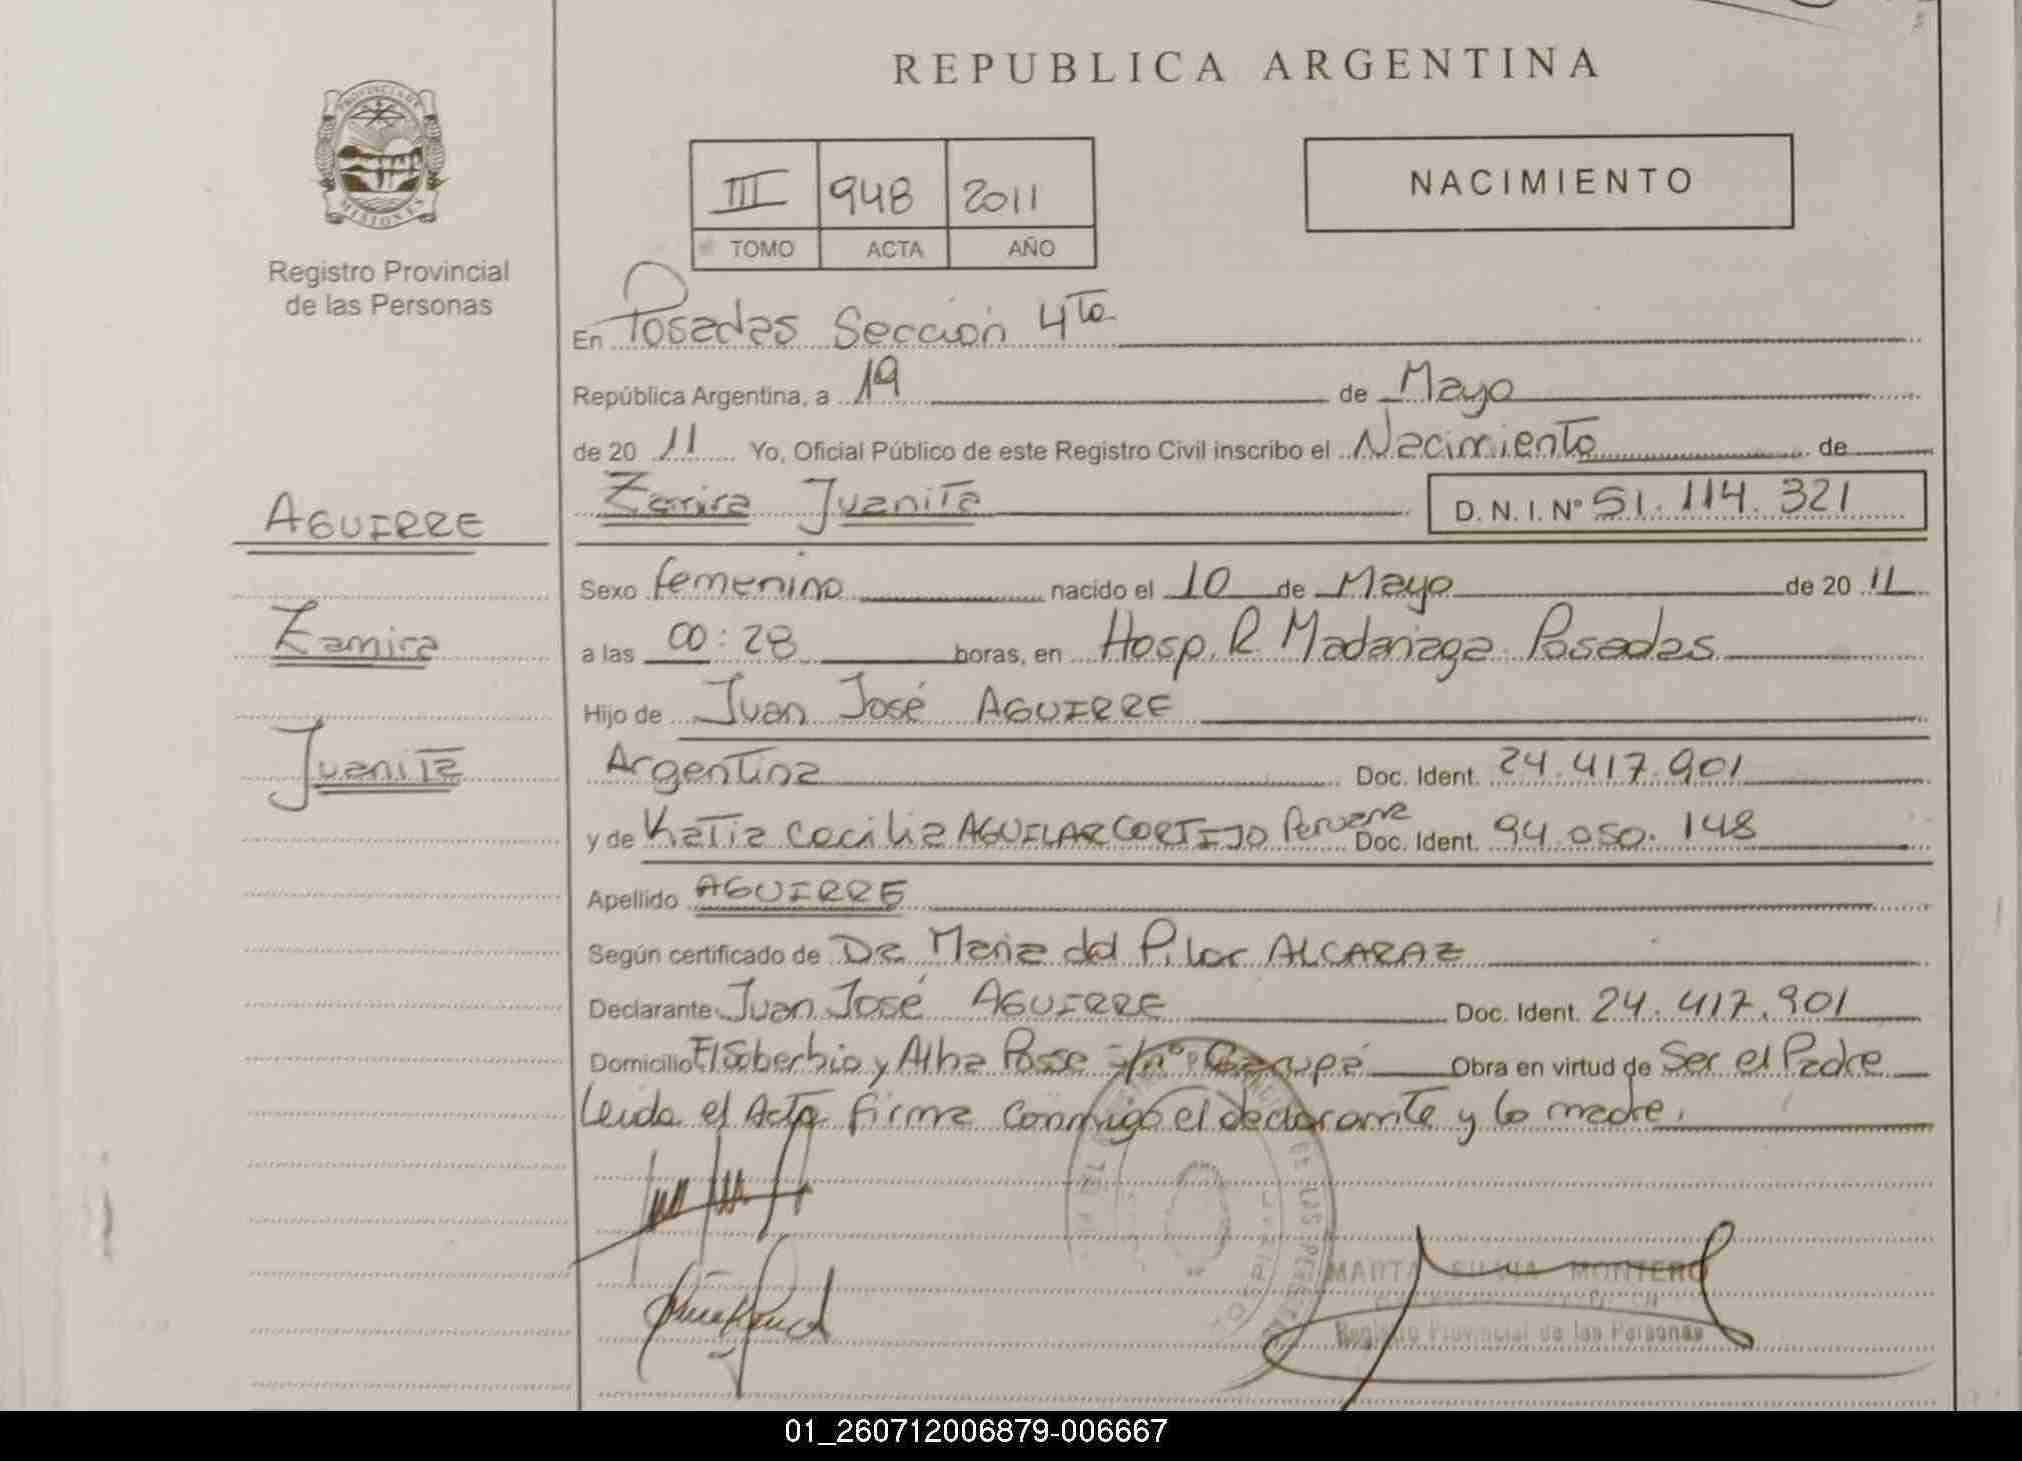 REPUBLICA ARGENTINA
PROVINCIA DE
MISIONES
Registro Provincial
de las Personas
III 948 2011
TOMO ACTA AÑO
NACIMIENTO
En Posadas Sección 4ta
República Argentina, a 19 de Mayo
de 20 11 Yo, Oficial Público de este Registro Civil inscribo el Nacimiento de
AGUIRRE
Zamira
Juanita
Zamira Juanita D. N. I. Nº 51.114.321
Sexo femenino nacido el 10 de Mayo de 20 11
a las 00:28 horas, en Hosp. R Madariaga Posadas
Hijo de Juan José AGUIRRE
Argentina Doc. Ident. 24.417.901
y de Katia Cecilia AGUILAR CORTIJO Peruana Doc. Ident. 94.050.148
Apellido AGUIRRE
Según certificado de Dra Maria del Pilar ALCARAZ
Declarante Juan José AGUIRRE Doc. Ident. 24.417.901
Domicilio El Soberbio y Alba Posse s/nº Garupá Obra en virtud de Ser el Padre
Leída el Acta firma conmigo el declarante y la madre.
MARTA SILVIA MONTERO
Registro Provincial de las Personas
01_260712006879-006667